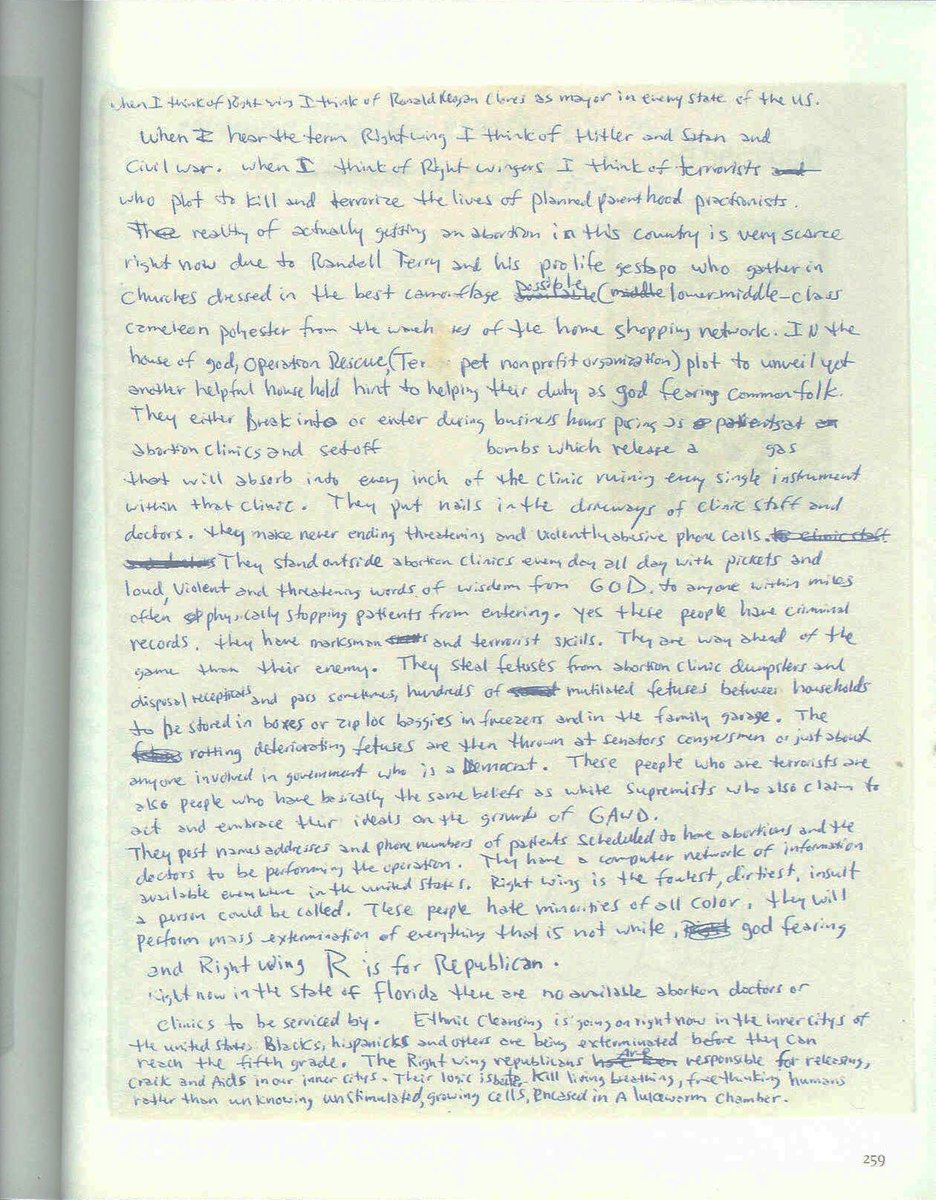 when I think of Right wing I think of Ronald Reagan Clones as mayor in every state of the US.
When I hear the term Right wing I think of Hitler and Satan and
Civil war. when I think of Right wingers I think of terrorists and
who plot to kill and terrorize the lives of planned parenthood practionists.
The reality of actually getting an abortion in this country is very scarce
right now due to Randell Terry and his prolife gestapo who gather in
churches dressed in the best camoflage possible available (middle lower middle-class
cameleon polyester from the of the home shopping network. IN the
house of god, Operation Rescue, (Ter pet nonprofit organization) plot to unveil yet
another helpful house hold hint to helping their duty as god fearing common folk.
They either Break into or enter during business hours posing as patients at an
abortion clinics and set off bombs which release a gas
that will absorb into every inch of the clinic ruining every single instrument
within that clinic. They put nails in the driveways of clinic staff and
doctors. they make never ending threatening and violently abusive phone calls. to clinic staff
and doctors They stand outside abortion clinics every day all day with pickets and
loud, violent and threatening words of wisdom from GOD. to anyone within miles
often physically stopping patients from entering. yes these people have criminal
records. they have marksman and terrorist skills. They are way ahead of the
game than their enemy. They steal fetuses from abortion clinic dumpsters and
disposal recepticals and pass sometimes, hundreds of mutilated fetuses between households
to be stored in boxes or zip loc baggies in freezers and in the family garage. The
rotting deteriorating fetuses are then thrown at senators congressmen or just about
anyone involved in government who is a Democrat. These people who are terrorists are
also people who have basically the same beliefs as white Supremists who also claim to
act and embrace their ideals on the grounds of GAWD.
They post names addresses and phone numbers of patients scheduled to have abortions and the
doctors to be performing the operation. They have a computer network of information
available everywhere in the united states. Right wing is the foulest, dirtiest, insult
a person could be called. These people hate minorities of all color. they will
perform mass extermination of everything that is not white, god fearing
and Right wing R is for Republican.
Right now in the state of florida there are no available abortion doctors or
clinics to be serviced by. Ethnic Cleansing is going on right now in the inner citys of
the united states. Blacks, hispanicks and others are being exterminated before they can
reach the fifth grade. The Right wing republicans have been Are responsible for releasing,
crack and Aids in our inner citys. Their logic is kill living breathing, free thinking humans
rather than unknowing unstimulated, growing cells, encased in A lukewarm chamber.
259